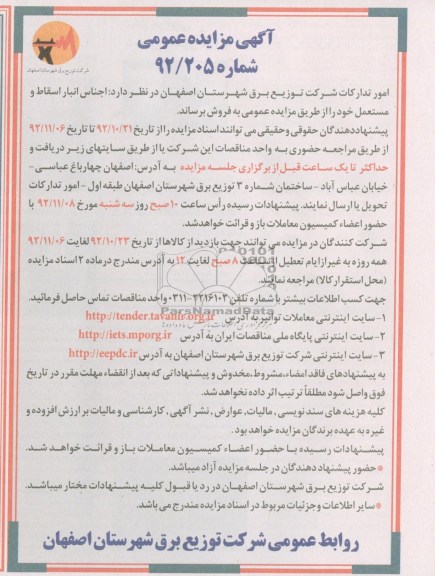 شرکت توزیع برق شهرستان اصفهان
آگهی مزایده عمومی
شماره ۹۲/۲۰۵
امور تدارکات شرکت توزیع برق شهرستان اصفهان در نظر دارد: اجناس انبار اسقاط و
مستعمل خود را از طریق مزایده عمومی به فروش برساند.
پیشنهاددهندگان حقوقی و حقیقی می توانند اسناد مزایده را از تاریخ ۹۲/۱۰/۲۱ تا تاریخ ۹۲/۱۱/۰۶
از طریق مراجعه حضوری به واحد مناقصات این شرکت یا از طریق سایتهای زیر دریافت و
حداکثر تا یک ساعت قبل از برگزاری جلسه مزایده به آدرس: اصفهان چهارباغ عباسی-
خیابان عباس آباد - ساختمان شماره ۳ توزیع برق شهرستان اصفهان طبقه اول - امور تدارکات
تحویل یا ارسال نمایند. پیشنهادات رسیده رأس ساعت ۱۰ صبح روز سه شنبه مورخ ۹۲/۱۱/۰۸ با
حضور اعضاء کمیسیون معاملات باز و قرائت خواهد شد.
شرکت کنندگان در مزایده می توانند جهت بازدید از کالاها از تاریخ ۹۲/۱۰/۲۳ لغایت ۹۲/۱۱/۰۶
همه روزه به غیر از ایام تعطیل از ساعت ۸ صبح لغایت ۱۲ به آدرس مندرج در ماده ۲ اسناد مزایده
(محل استقرار کالا) مراجعه نمایند.
جهت کسب اطلاعات بیشتر با شماره تلفن ۲۲۱۶۱۰۳-۰۳۱۱ واحد مناقصات تماس حاصل فرمائید.
۱- سایت اینترنتی معاملات توانیر به آدرس http://tender.tavanir.org.ir
۲- سایت اینترنتی پایگاه ملی مناقصات ایران به آدرس http://iets.mporg.ir
۳- سایت اینترنتی شرکت توزیع برق شهرستان اصفهان به آدرس http://eepdc.ir
به پیشنهادهای فاقد امضاء، مشروط، مخدوش و پیشنهاداتی که بعد از انقضاء مهلت مقرر در تاریخ
فوق واصل شود مطلقاً ترتیب اثر داده نخواهد شد.
کلیه هزینه های سند نویسی، مالیات، عوارض، نشر آگهی، کارشناسی و مالیات بر ارزش افزوده و
غیره به عهده برندگان مزایده خواهد بود.
پیشنهادات رسیده با حضور اعضاء کمیسیون معاملات باز و قرائت خواهد شد.
* حضور پیشنهاد دهندگان در جلسه مزایده آزاد میباشد.
شرکت توزیع برق شهرستان اصفهان در رد یا قبول کلیه پیشنهادات مختار میباشد.
* سایر اطلاعات و جزئیات مربوط در اسناد مزایده مندرج می باشد.
روابط عمومی شرکت توزیع برق شهرستان اصفهان
ParsNamadData